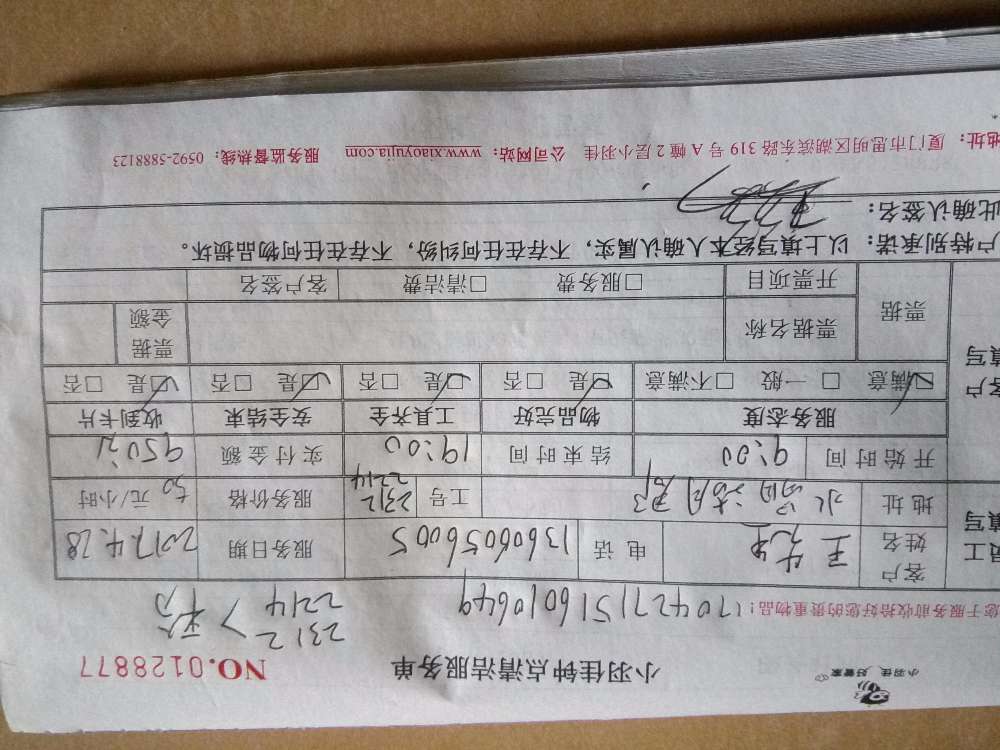 小羽佳 好管家
小羽佳钟点清洁服务单 NO.0128877
2312
2214 > 稀
您于服务前收拾好您的贵重物品! 170427151601064 9
客户姓名 王先生 电话 13606056005 服务日期 2017.4.28
地址 工号 2312 2214 服务价格 50 元/小时
开始时间 9:00 结束时间 19:00 实付金额 950元
服务态度 物品完好 工具齐全 安全结束 收到卡片
☑满意 □一般 □不满意 ☑是 □否 ☑是 □否 ☑是 □否 ☑是 □否
员工填写
客户填写
票据 票据名称 票据金额
开票项目 □服务费 □清洁费 客户签名
户特别承诺：以上填写经本人确认属实，不存在任何纠纷，不存在任何物品损坏。
此确认签名：
地址：厦门市思明区湖滨东路 319 号 A 幢 2 层小羽佳 公司网站：www.xiaoyujia.com 服务监督热线：0592-5888123